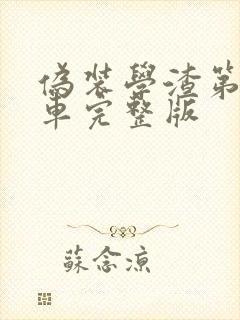 偽装學渣第
車完整版
蘇念涼